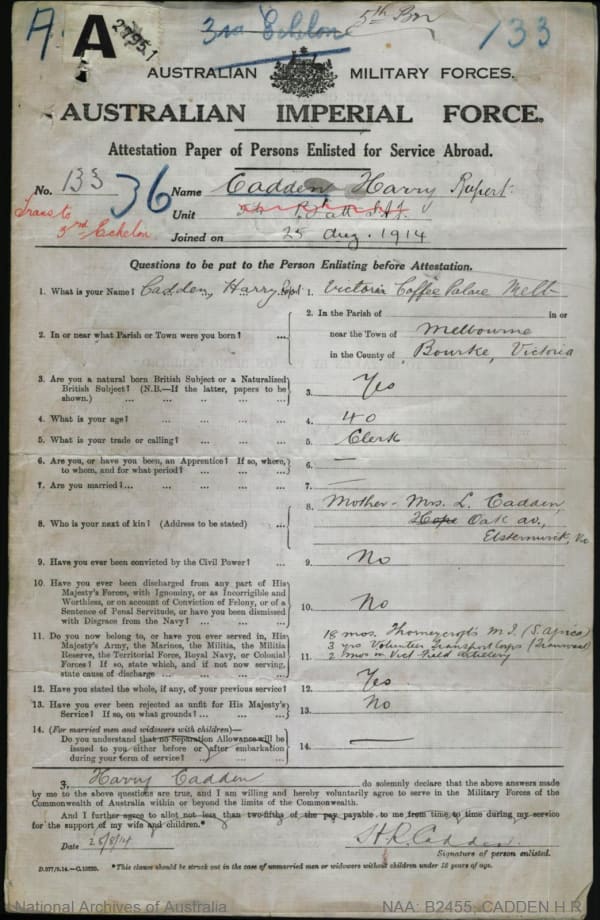 A.
A
2795.1
3rd Echelon
5th Bn
133
AUSTRALIAN MILITARY FORCES.
AUSTRALIAN IMPERIAL FORCE.
Attestation Paper of Persons Enlisted for Service Abroad.
No. 133 36 Name Cadden Harry Rupert
Trans to
3rd Echelon
Unit 5th Batt. A.I.F.
Joined on 25 Aug. 1914
Questions to be put to the Person Enlisting before Attestation.
1. What is your Name? Cadden, Harry Rpt 1. Victoria Coffee Palace Melb
2. In or near what Parish or Town were you born? ... 2. In the Parish of in or
near the Town of Melbourne
in the County of Bourke, Victoria
3. Are you a natural born British Subject or a Naturalized
British Subject? (N.B.—If the latter, papers to be
shown.) ... ... ... ... 3. Yes
4. What is your age? ... ... ... ... 4. 40
5. What is your trade or calling? ... ... ... 5. Clerk
6. Are you, or have you been, an Apprentice? If so, where,
to whom, and for what period? ... ... ... 6. —
7. Are you married? ... ... ... ... ... 7. —
8. Who is your next of kin? (Address to be stated) ... 8. Mother - Mrs. L. Cadden,
Hope Oak av.,
Elsternwick, Vic
9. Have you ever been convicted by the Civil Power? ... 9. No
10. Have you ever been discharged from any part of His
Majesty's Forces, with Ignominy, or as Incorrigible and
Worthless, or on account of Conviction of Felony, or of a
Sentence of Penal Servitude, or have you been dismissed
with Disgrace from the Navy? ... ... ... 10. No
11. Do you now belong to, or have you ever served in, His
Majesty's Army, the Marines, the Militia, the Militia
Reserve, the Territorial Force, Royal Navy, or Colonial
Forces? If so, state which, and if not now serving,
state cause of discharge ... ... ... ... 11. 18 mos. Thorneycroft's M.I. (S. Africa)
3 yrs Volunteer Transport Corps (Transvaal)
2 mos in Vict Field Artillery
12. Have you stated the whole, if any, of your previous service? 12. Yes
13. Have you ever been rejected as unfit for His Majesty's
Service? If so, on what grounds? ... ... ... 13. No
14. (For married men and widowers with children)—
Do you understand that no Separation Allowance will be
issued to you either before or after embarkation
during your term of service? ... ... ... 14. —
I, Harry Cadden do solemnly declare that the above answers made
by me to the above questions are true, and I am willing and hereby voluntarily agree to serve in the Military Forces of the
Commonwealth of Australia within or beyond the limits of the Commonwealth.
And I further agree to allot not less than two-fifths of the pay payable to me from time to time during my service
for the support of my wife and children.*
Date 25/8/14 H.R. Cadden
Signature of person enlisted.
D.577/8.14.—C.10280. *This clause should be struck out in the case of unmarried men or widowers without children under 18 years of age.
National Archives of Australia NAA: B2455, CADDEN H R